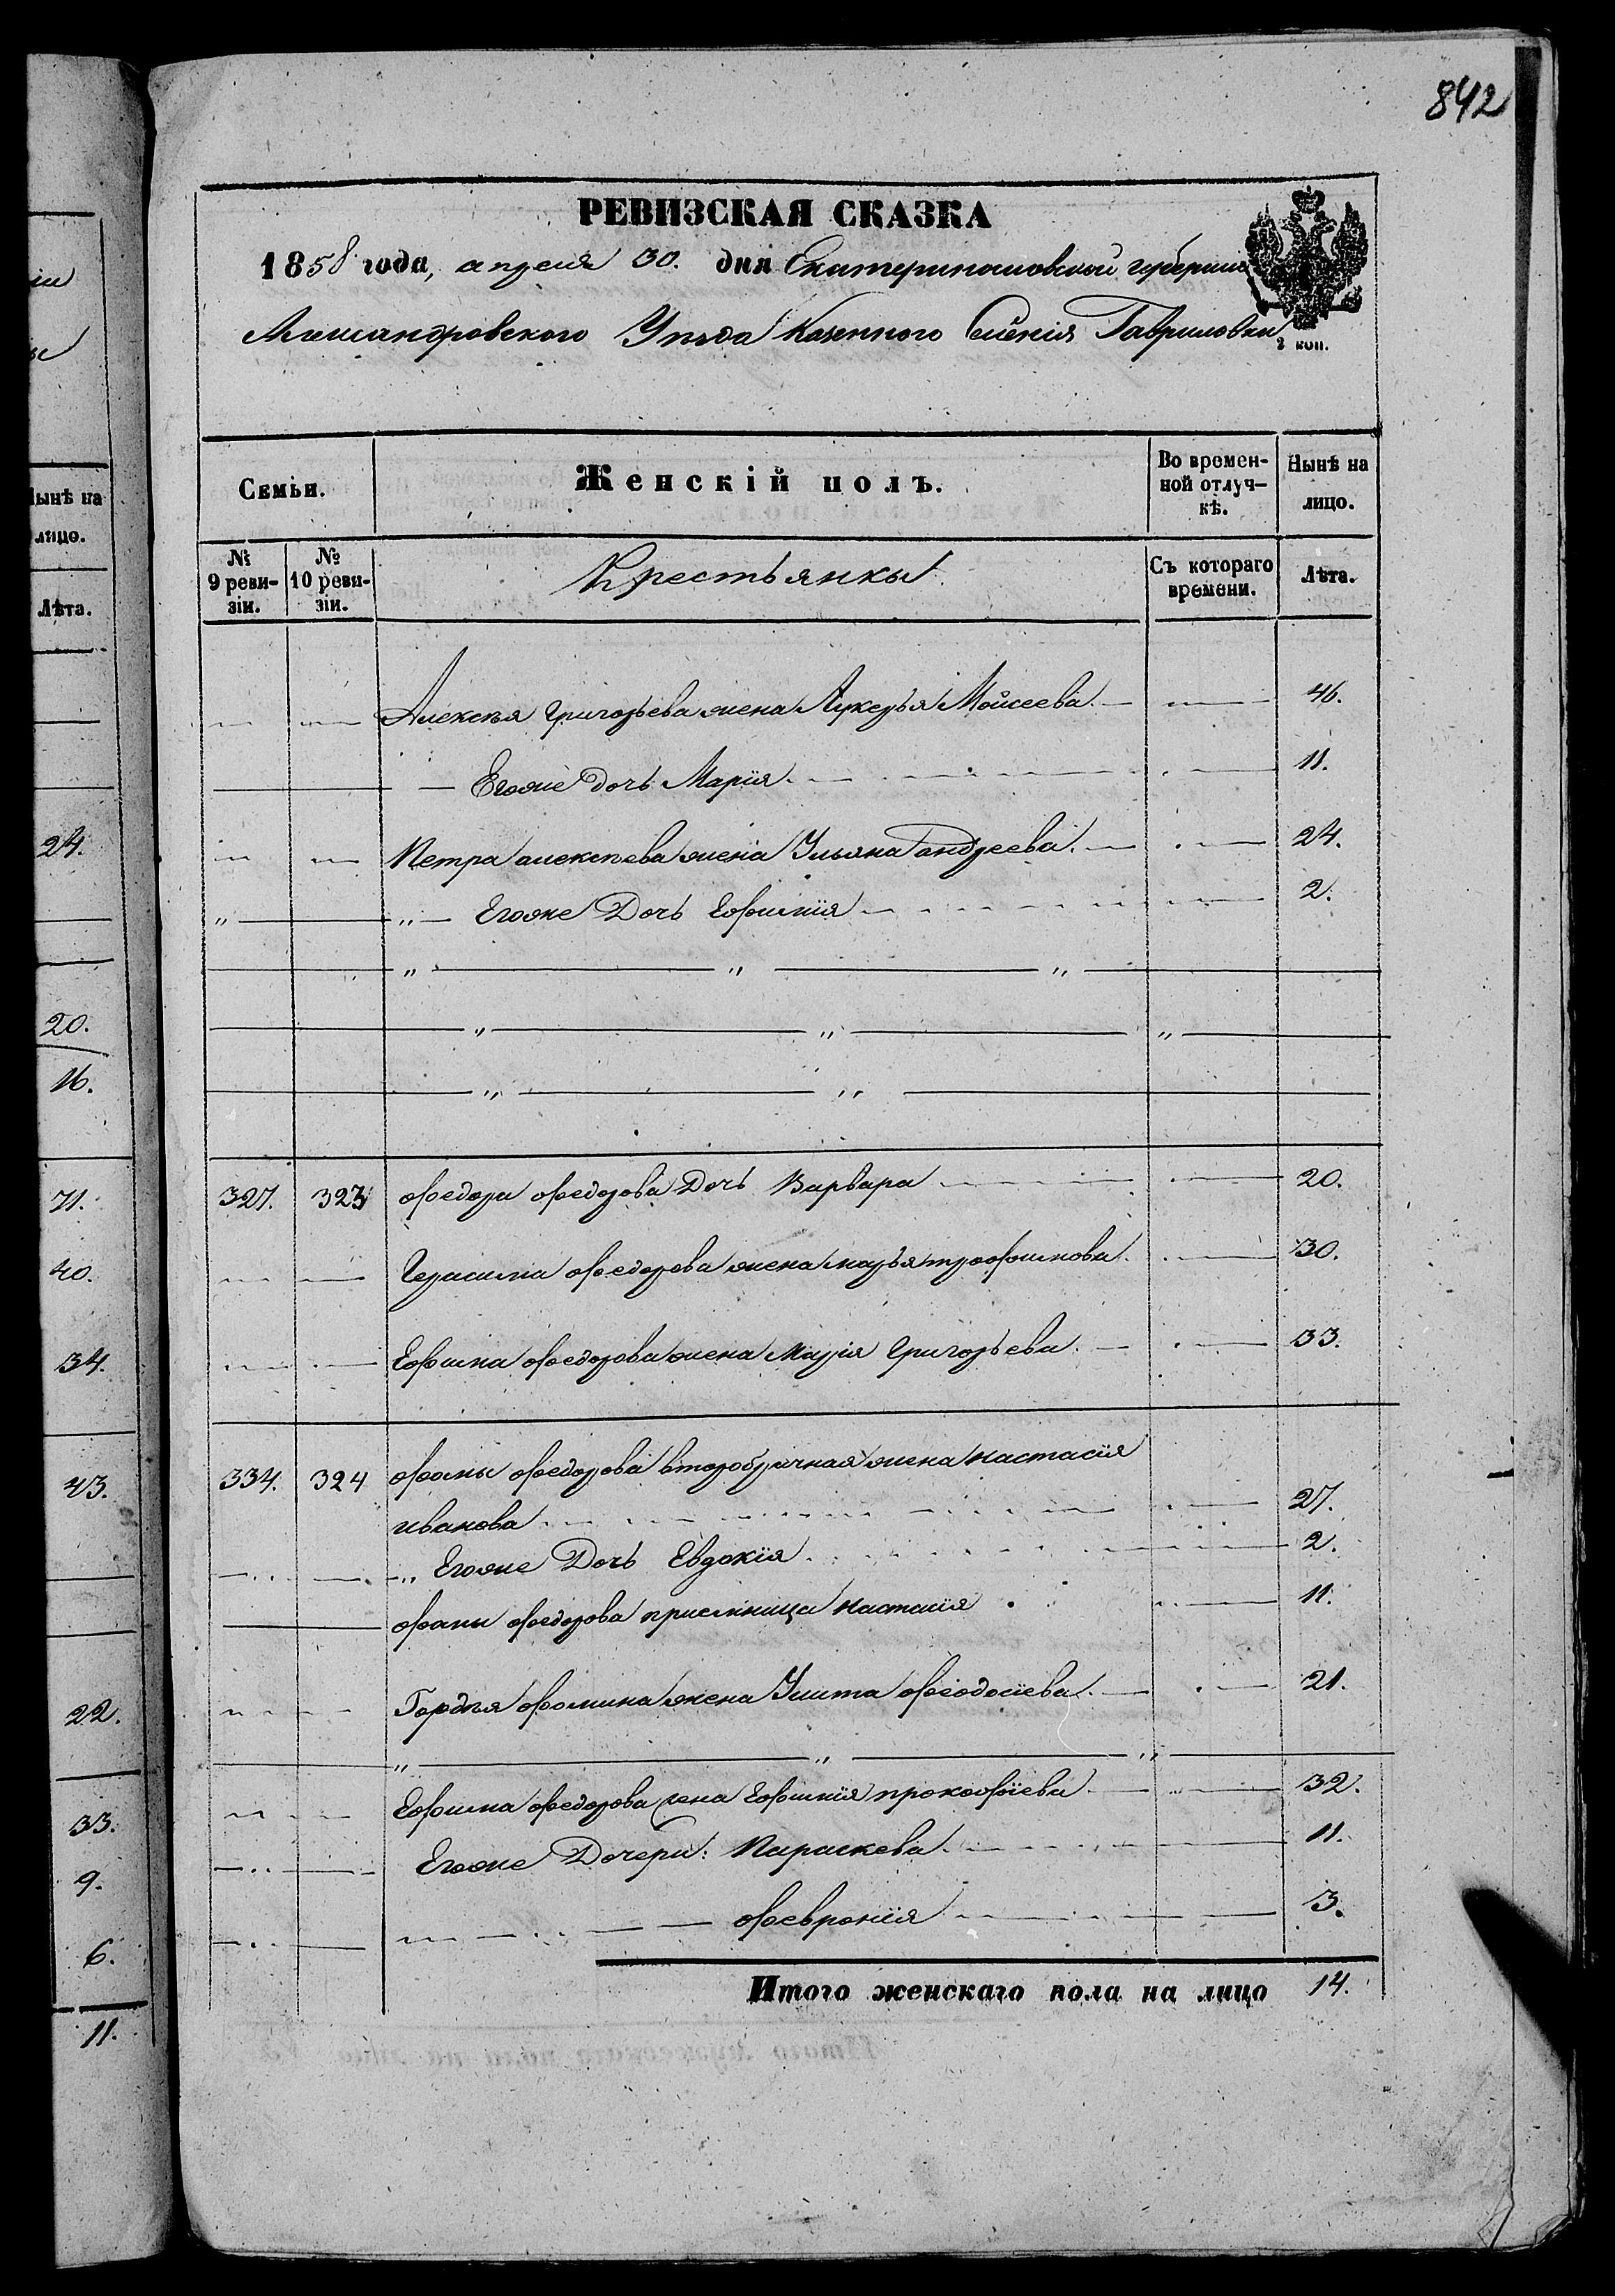 842
РЕВИЗСКАЯ СКАЗКА
1858 года, апреля 30. дня Екатеринославской губернии
Александровского Уѣзда Казенного Селенія Гавриловки
2 коп.
Семьи.
Женскій полъ.
Во времен-
ной отлуч-
кѣ.
Нынѣ на
лицо.
№
9 реви-
зіи.
№
10 реви-
зіи.
Крестьянки
Съ котораго
времени.
Лѣта.
Алексѣя Григорьева жена Лукерья Мойсеева 46.
Егоже дочь Марія 11.
Петра алексѣева жена Ульяна андреева 24.
Егоже Дочь Ефимія 2.
327. 323 Федора Федорова Дочь Варвара 20.
Герасима Федорова жена марья трофимова 30.
Ефима Федорова жена Марія Григорьева 33.
334. 324 Фомы Федорова второбрачная жена настасія
иванова 27.
Егоже Дочь Евдокія 2.
Фомы Федорова приемница настасія 11.
Гордѣя Фомина жена Улита Феодосіева 21.
Ефима Федорова жена Ефимія прокофіева 32.
Егоже Дочери: Параскева 11.
Февронія 3.
Итого женскаго пола на лицо 14.
Нынѣ на
лицо.
Лѣта.
24.
20.
16.
71.
40.
34.
43.
22.
33.
9.
6.
11.